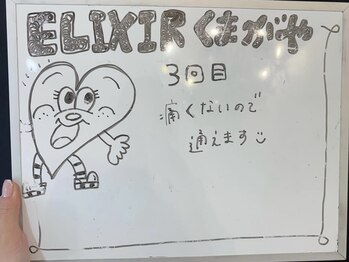 ELIXIR くまがや
3回目
痛くないので
通えます